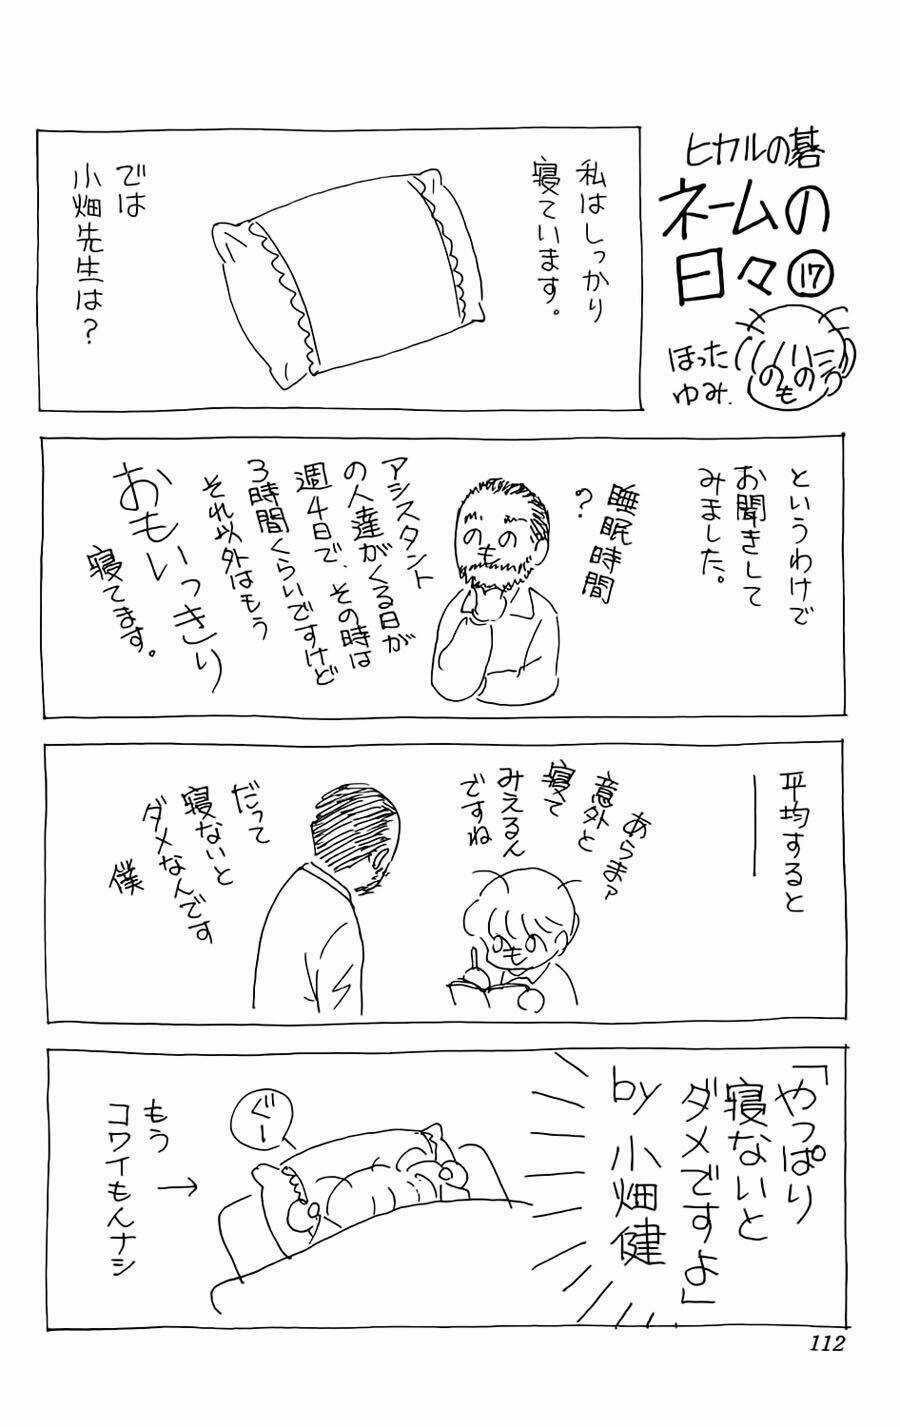 ヒカルの碁
ネームの
日々⑰
ほった
ゆみ.
私はしっかり
寝ています。
では
小畑先生は?
というわけで
お聞きして
みました。
睡眠時間
?
アシスタント
の人達がくる日が
週4日で、その時は
3時間くらいですけど
それ以外はもう
おもいっきり
寝てます。
平均すると
あらまァ
意外と
寝て
みえるん
ですね
だって
寝ないと
ダメなんです
僕
「やっぱり
寝ないと
ダメですよ」
by 小畑健
ぐー
もう
コワイもんナシ
112